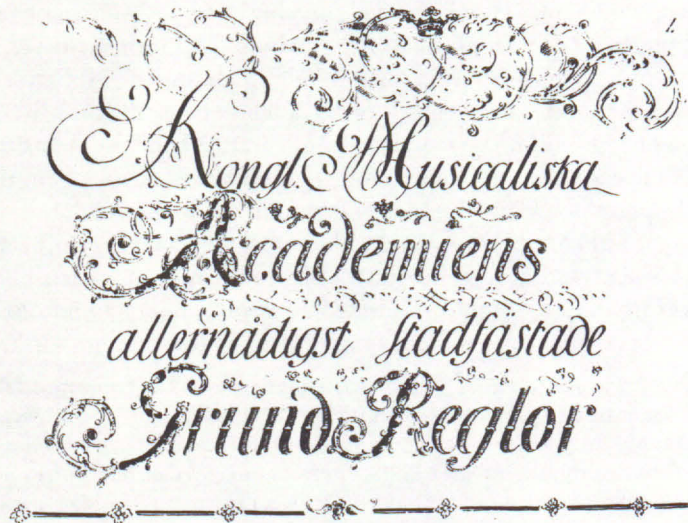 1.
Kongl. Musicaliska
Academiens
allernådigst stadfästade
Grund Reglor